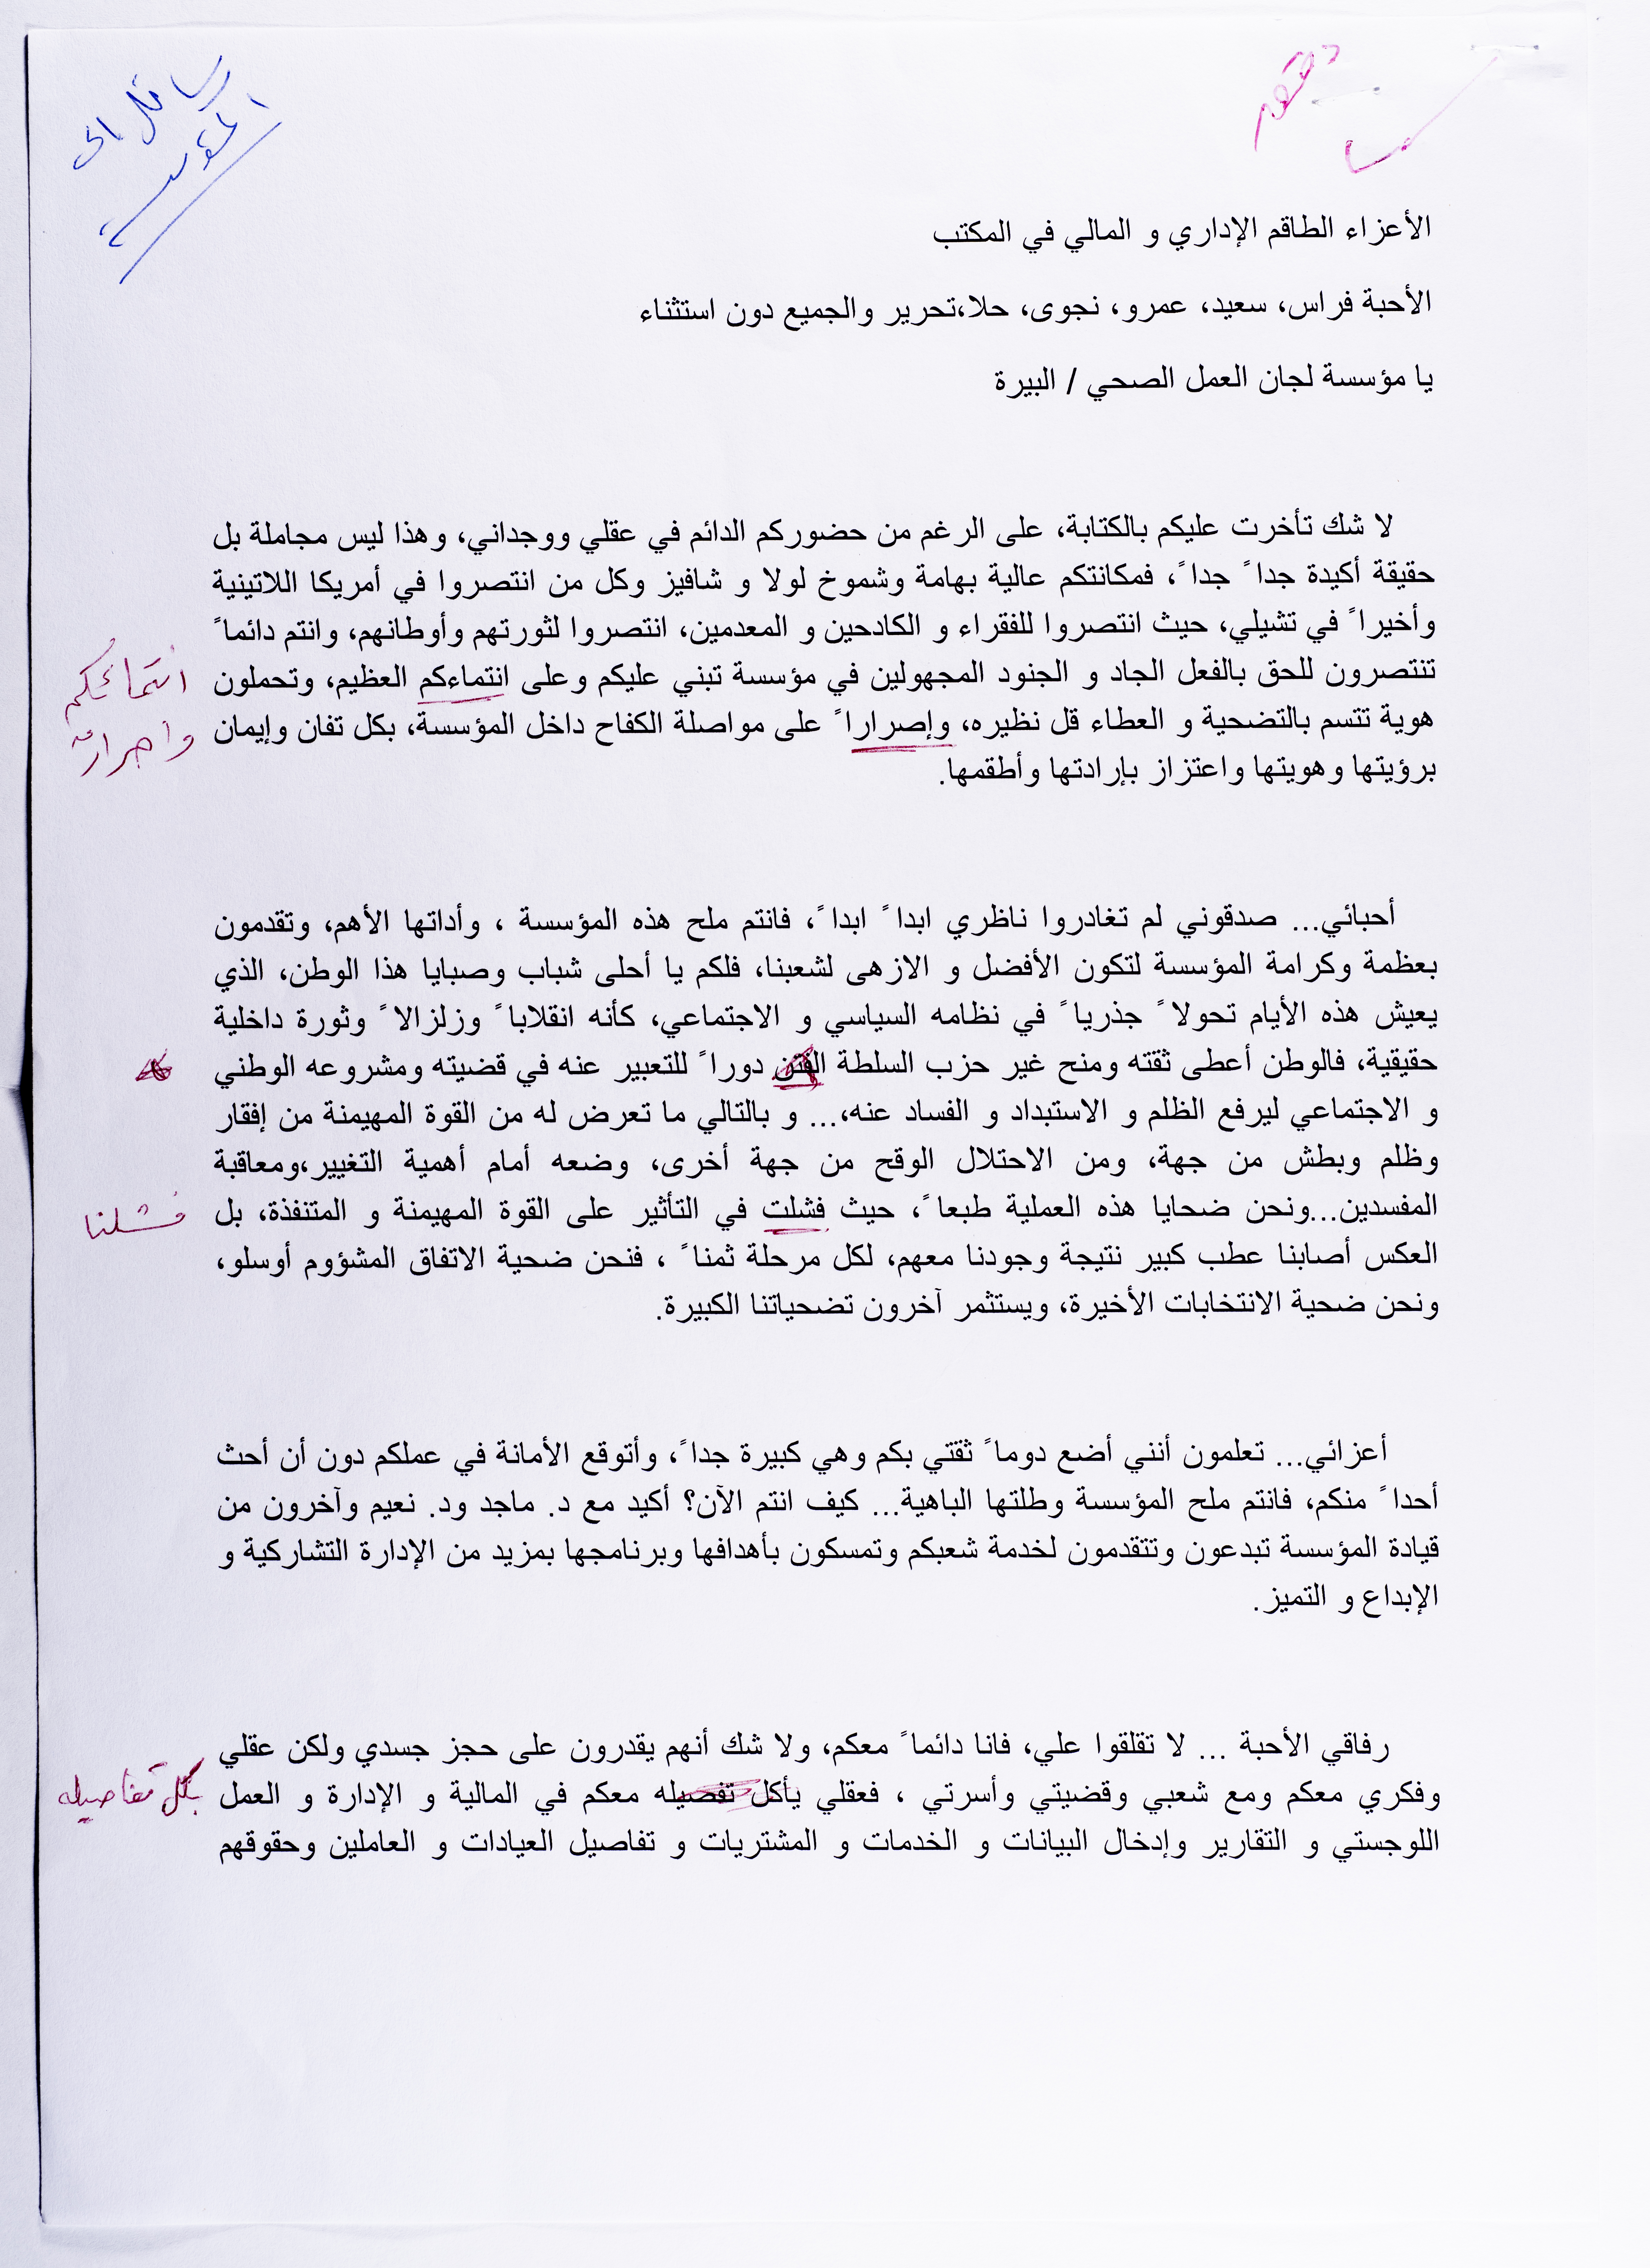 رسائل الى
المؤسسة
الأعزاء الطاقم الإداري و المالي في المكتب
الأحبة فراس، سعيد، عمرو، نجوى، حلا،تحرير والجميع دون استثناء
يا مؤسسة لجان العمل الصحي / البيرة
لا شك تأخرت عليكم بالكتابة، على الرغم من حضوركم الدائم في عقلي ووجداني، وهذا ليس مجاملة بل
حقيقة أكيدة جدا ً جدا ً، فمكانتكم عالية بهامة وشموخ لولا و شافيز وكل من انتصروا في أمريكا اللاتينية
وأخيرا ً في تشيلي، حيث انتصروا للفقراء و الكادحين و المعدمين، انتصروا لثورتهم وأوطانهم، وانتم دائما ً
تنتصرون للحق بالفعل الجاد و الجنود المجهولين في مؤسسة تبني عليكم وعلى انتماءكم العظيم، وتحملون
انتمائكم
هوية تتسم بالتضحية و العطاء قل نظيره، وإصرارا ً على مواصلة الكفاح داخل المؤسسة، بكل تفان وإيمان
واصرار
برؤيتها وهويتها واعتزاز بإرادتها وأطقمها.
أحبائي... صدقوني لم تغادروا ناظري ابدا ً ابدا ً، فانتم ملح هذه المؤسسة ، وأداتها الأهم، وتقدمون
بعظمة وكرامة المؤسسة لتكون الأفضل و الازهى لشعبنا، فلكم يا أحلى شباب وصبايا هذا الوطن، الذي
يعيش هذه الأيام تحولا ً جذريا ً في نظامه السياسي و الاجتماعي، كأنه انقلابا ً وزلزالا ً وثورة داخلية
حقيقية، فالوطن أعطى ثقته ومنح غير حزب السلطة دورا ً للتعبير عنه في قضيته ومشروعه الوطني
و الاجتماعي ليرفع الظلم و الاستبداد و الفساد عنه،... و بالتالي ما تعرض له من القوة المهيمنة من إفقار
وظلم وبطش من جهة، ومن الاحتلال الوقح من جهة أخرى، وضعه أمام أهمية التغيير،ومعاقبة
المفسدين...ونحن ضحايا هذه العملية طبعا ً، حيث فشلت في التأثير على القوة المهيمنة و المتنفذة، بل
فشلنا
العكس أصابنا عطب كبير نتيجة وجودنا معهم، لكل مرحلة ثمنا ً ، فنحن ضحية الاتفاق المشؤوم أوسلو،
ونحن ضحية الانتخابات الأخيرة، ويستثمر آخرون تضحياتنا الكبيرة.
أعزائي... تعلمون أنني أضع دوما ً ثقتي بكم وهي كبيرة جدا ً، وأتوقع الأمانة في عملكم دون أن أحث
أحدا ً منكم، فانتم ملح المؤسسة وطلتها الباهية... كيف انتم الآن؟ أكيد مع د. ماجد ود. نعيم وآخرون من
قيادة المؤسسة تبدعون وتتقدمون لخدمة شعبكم وتمسكون بأهدافها وبرنامجها بمزيد من الإدارة التشاركية و
الإبداع و التميز.
رفاقي الأحبة ... لا تقلقوا علي، فانا دائما ً معكم، ولا شك أنهم يقدرون على حجز جسدي ولكن عقلي
وفكري معكم ومع شعبي وقضيتي وأسرتي ، فعقلي يأكل تفصيله معكم في المالية و الإدارة و العمل
بكل تفاصيله
اللوجستي و التقارير وإدخال البيانات و الخدمات و المشتريات و تفاصيل العيادات و العاملين وحقوقهم